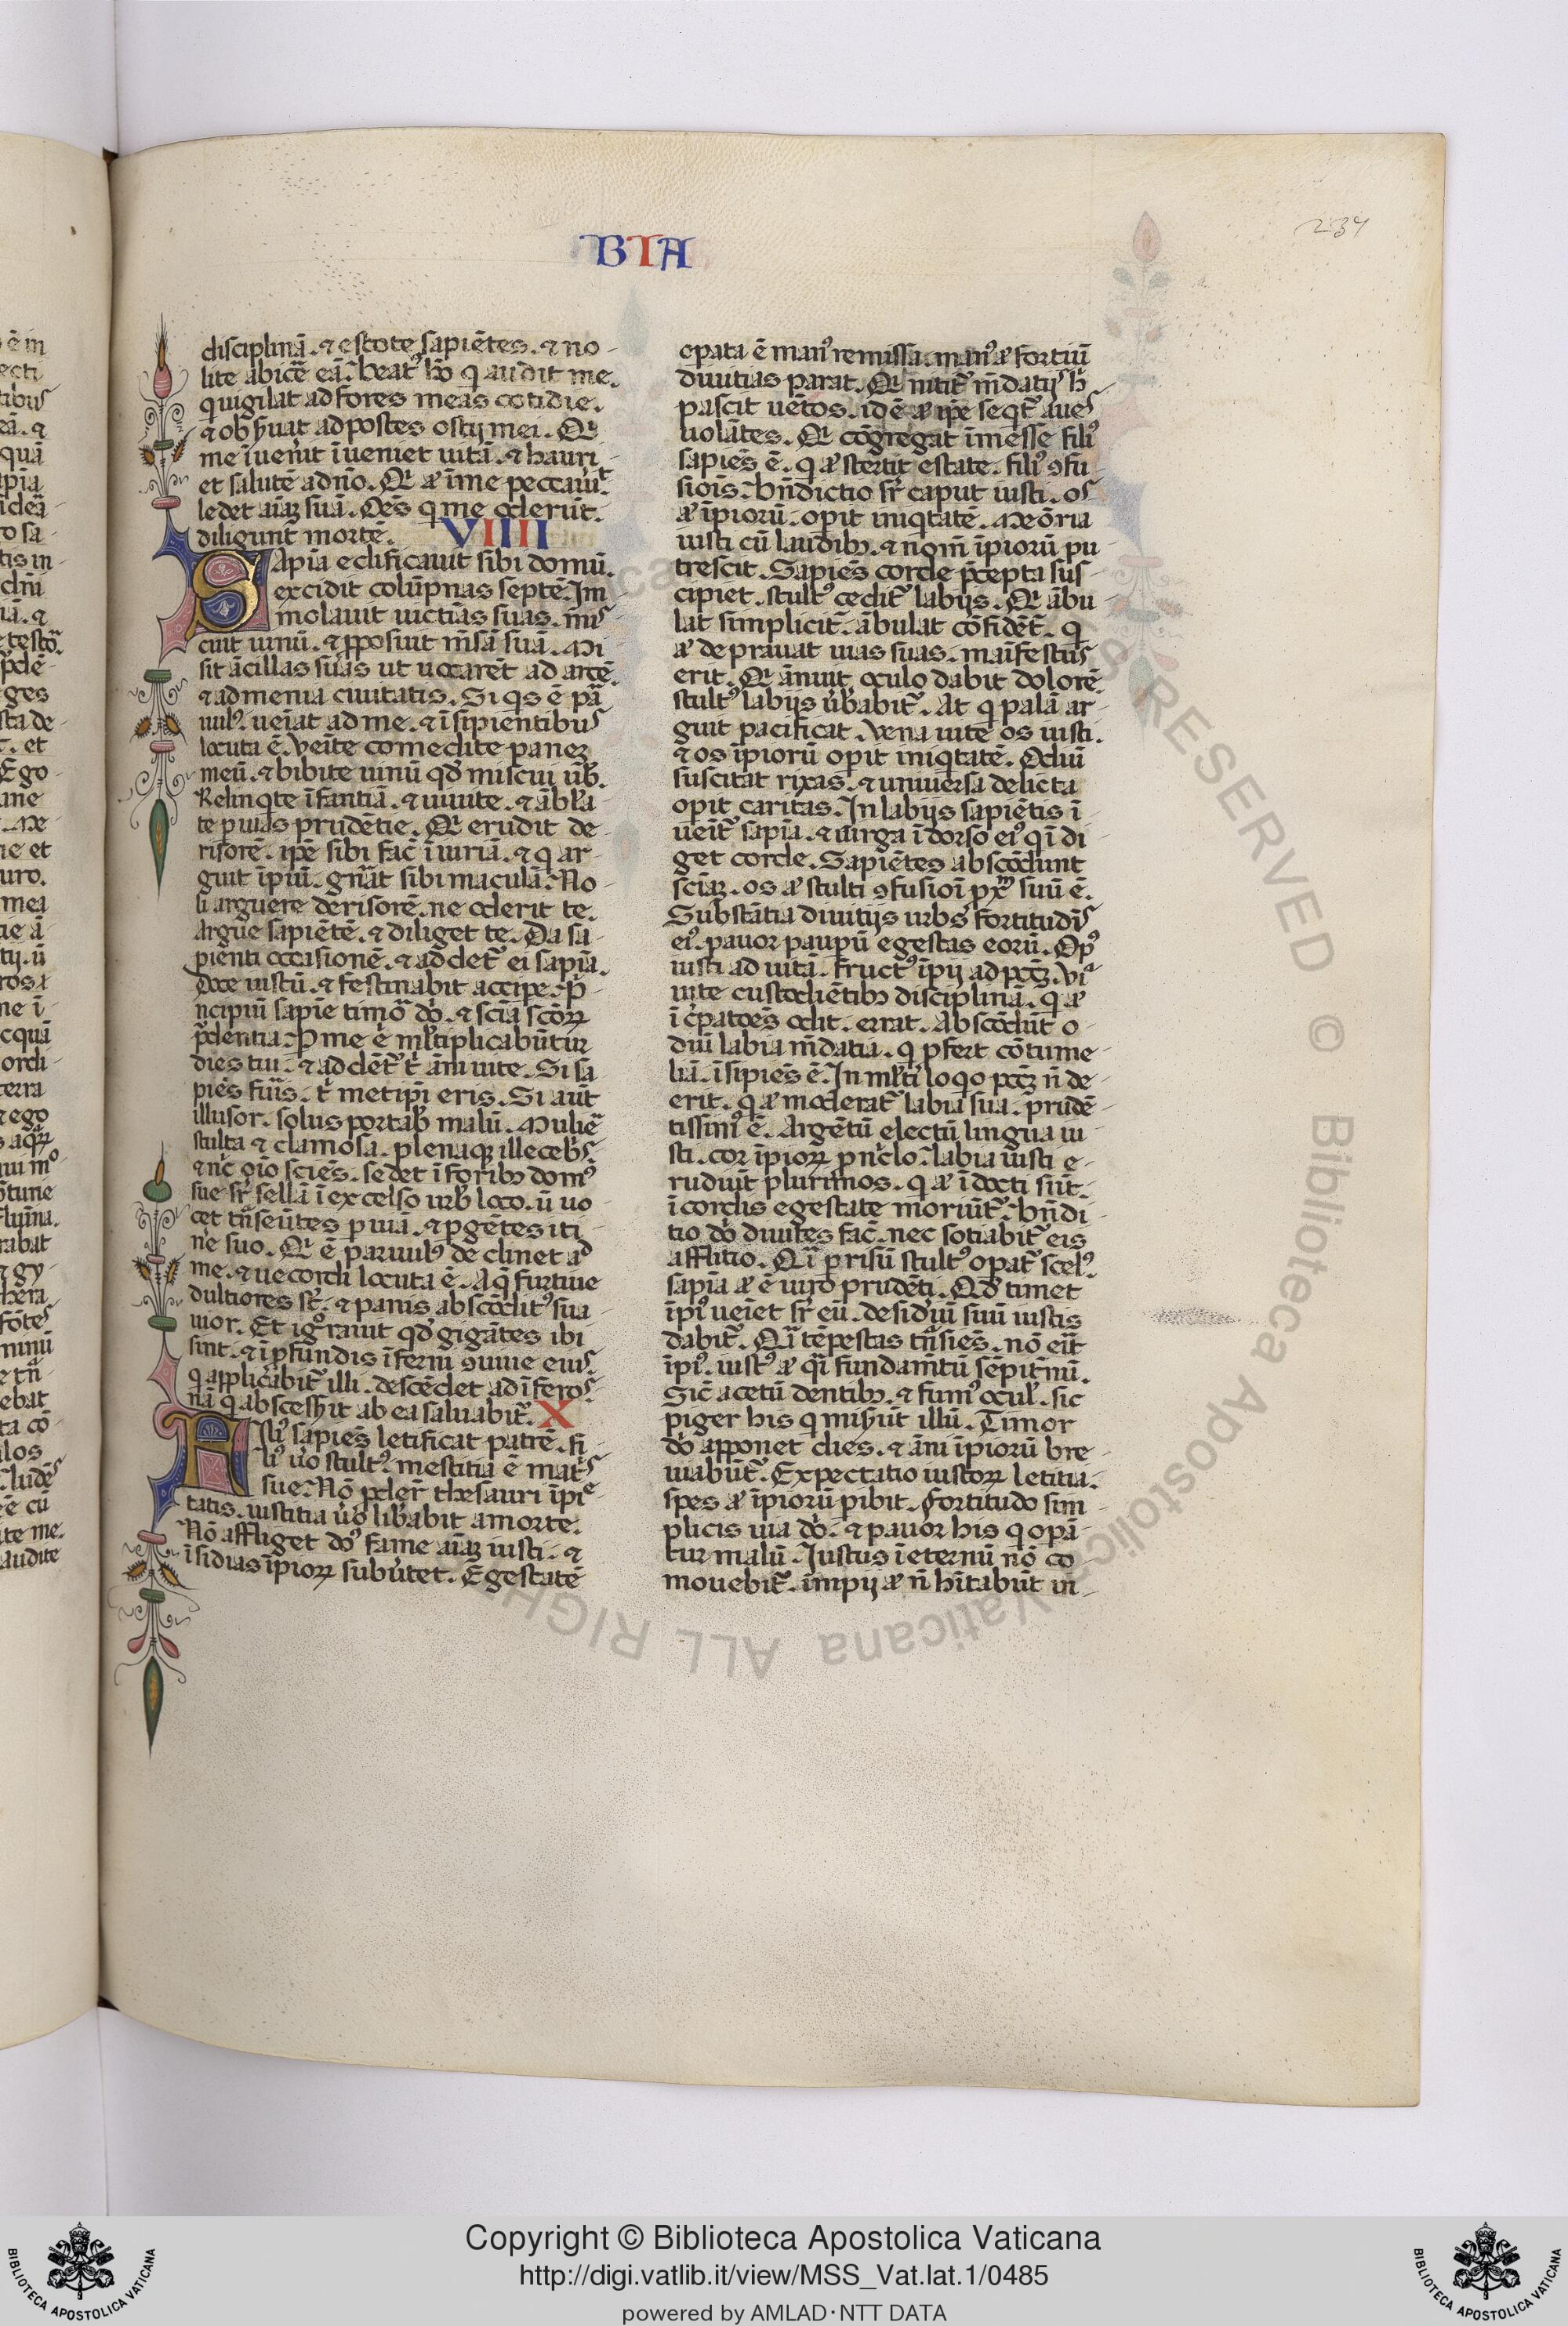 BIA
234
disciplinā. ⁊ estote sapiētes. ⁊ no-
lite abicē̄ eā. Beat᷒ hō q audit me.
q uigilat ad fores meas cotidie.
⁊ obẜuat ad postes ostij mei. Qi
me īuen̄it īueniet uitā. ⁊ hauri-
et salutē a dn̄o. Qi aū ī me peccau̅it.
ledet aīaʒ suā. Oēs q me oderūt.
diligunt mortē. VIIII
Sapīa edificauit sibi domū.
excidit colūpnas septē. Im
molauit uictīas suas. mis
cuit uinū. ⁊ pposuit mēsā suā. Mi
sit ācillas suas ut uocarēt ad arcē.
⁊ ad menia ciuitatis. Si qs ē pā
uul᷒. ueīat ad me. ⁊ īsipientibus
locuta ē. Veīte comedite paneʒ
meū. ⁊ bibite uinū qđ miscui uƀ.
Relinqte īfantiā. ⁊ uiuite. ⁊ ābl̄a
te p uias prudētie. Qi erudit de-
risorē. ipē sibi fac̄ īiuriā. ⁊ q ar-
guit īpiū. gn̄at sibi maculā. No-
li arguere derisorē. ne oderit te.
Argue sapiētē. ⁊ diliget te. Da sa-
pienti occasionē. ⁊ addet̄ ei sapīa.
Doce iustū. ⁊ festinabit accipe. p̄-
ncipiū sapīe timō dō. ⁊ scīa scōꝝ
p̄dentia. P me ē ml̄tiplicabūtur
dies tui. ⁊ addēt̄ t̄ āni uite. Si sa
piēs fuīs. t̄ metipī eris. Si aūt
illusor. solus portab̄ malū. Mulie᷑
stulta ⁊ clamosa. plenaqʒ illeceb̄s.
⁊ nc̄ oīo sciēs. sedet ī foribʒ dom᷒
sue sr̄ sellā ī excelso urb̄ loco. ū uo
cet tn̄seūtes p uiā. ⁊ pgētes iti
n̄e suo. Qi ē paruul᷒ declinet ad
me. ⁊ uecordi locuta ē. Aq̄ furtiue
dultiores st̄. ⁊ panis abscōdit᷒ sua
uior. Et ig°rauit qđ gigātes ibi
sint. ⁊ ī pfundis īferni ꝯuiue eius.
q applicabit̄ illi. descēdet ad īferos.
nā q abscesẜit ab ea saluabit̄. X
Fili᷒ sapiēs letificat patrē. fi
li᷒ ūo stult᷒ mestitia ē mat̄s
sue. Nō pder̄t thesauri īpie
tatis. iustitia ūo lib̄abit a morte.
Nō affliget dō᷒ fame aīaʒ iusti. ⁊
īsidias īpioꝝ subūtet. Egestatē
opata ē man᷒ remissa. man᷒ aū fortiū
diuitias parat. Qi nitit̄ mēdatijs h̄.
pascit uētos. idē aū ipē seqt̄ aues
uolātes. Qi cōgregat ī messe fili᷒
sapiēs ē. q aū stertit estate. fili᷒ ꝯfu
siois. Bn̄dictio sr̄ caput iusti. os
aū īpiorū. opit iniqtatē. Meōria
iusti cū laudibʒ. ⁊ nom̄ īpiorū pu
trescit. Sapiēs corde p̄cepta sus-
cipiet. stult᷒ cedit̄ labijs. Qi ābu
lat simplicit̄. ābulat cōfidēt̄. q
aū deprauat uias suas. maīfestus
erit. Qi ānuit oculo dabit dolorē.
stult᷒ labijs ūb̄abit̄. At q palā ar-
guit pacificat. Vena uite os iusti.
⁊ os īpiorū opit iniqtatē. Odiū
suscitat rixas. ⁊ uniuersa delicta
opit caritas. In labijs sapiētis ī
ueit̄ sapīa. ⁊ uirga ī dorso ei᷒ q ī di
get corde. Sapiētes abscōdunt
scīaʒ. os aū stulti ꝯfusioī pxᵐ suū ē.
Substātia diuitijs urbs fortitudīs
ei᷒. pauor paupū egestas eorū. Op᷒
iusti ad uitā. fruct᷒ īpij ad pctʒ. Viᵃ
uite custodiētibʒ disciplinā. q aū
īc̄patoēs odit. errat. Abscōdūt o-
diū labia mēdatia. q pfert cōtume-
liā. īsipiēs ē. In ml̄ti loqo pctʒ n̄ de-
erit. q aū moderat̄ labia sua. prudē-
tissim᷒ ē. Argētū electū lingua iu-
sti. cor īpioꝝ p nic̄lo. labia iusti e-
rudiūt plurimos. q aū īdocti sūt.
ī cordis egestate moriūt̄. Bn̄di-
tio dō diuites fac̄. nec sotiabit̄ eis
afflitio. Qi p risū stult᷒ opat̄ scel᷒.
sapīa aū ē uiro prudēti. Qđ timet
īpi᷒ ueīet sr̄ eū. desid̄iū suū iustis
dabit̄. Qi tēpestas tn̄siēs. nō eīt
īpi᷒. iust᷒ aū qi fundam̄tū sēpit̄nū.
Sic̄ acetū dentibʒ. ⁊ fum᷒ ocul̄. sic
piger his q misẜūt illū. Timor
dō apponet dies. ⁊ āni īpiorū bre-
uiabūt̄. Expectatio iustoꝝ letitia.
spes aū īpiorū pibit. Fortitudo sim-
plicis uia dō. ⁊ pauor his q opā-
tur malū. Iustus ī eternū nō co
mouebit̄. impij aū n̄ hītabūt in-
Copyright © Biblioteca Apostolica Vaticana
http://digi.vatlib.it/view/MSS_Vat.lat.1/0485
powered by AMLAD·NTT DATA
BIBLIOTECA APOSTOLICA VATICANA
BIBLIOTECA APOSTOLICA VATICANA